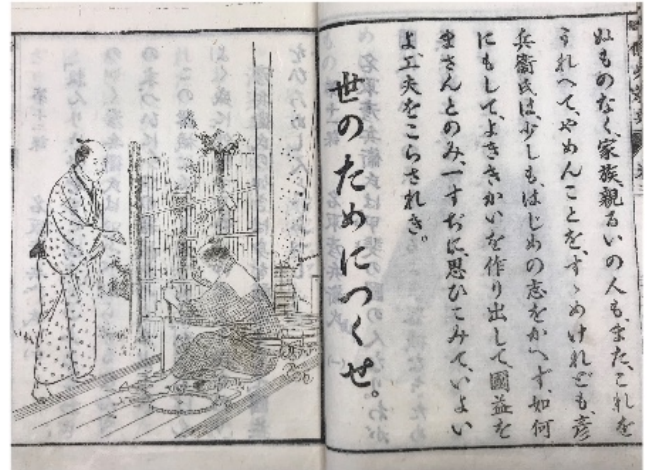 ぬものなく、家族、親るいの人も、また、これを
うれへて、やめんことを、すゝめけれども、彦
兵衞氏は、少しもはじめの志をかへず、如何
にもして、よききかいを作り出して、國益を
まさんとのみ、一すぢに、思ひこみて、いよい
よ、工夫をこらされき。
世のためにつくせ。